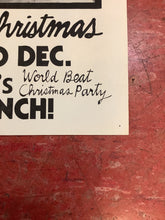 Christmas
O DEC.
's World Beat
Christmas Party
NCH!